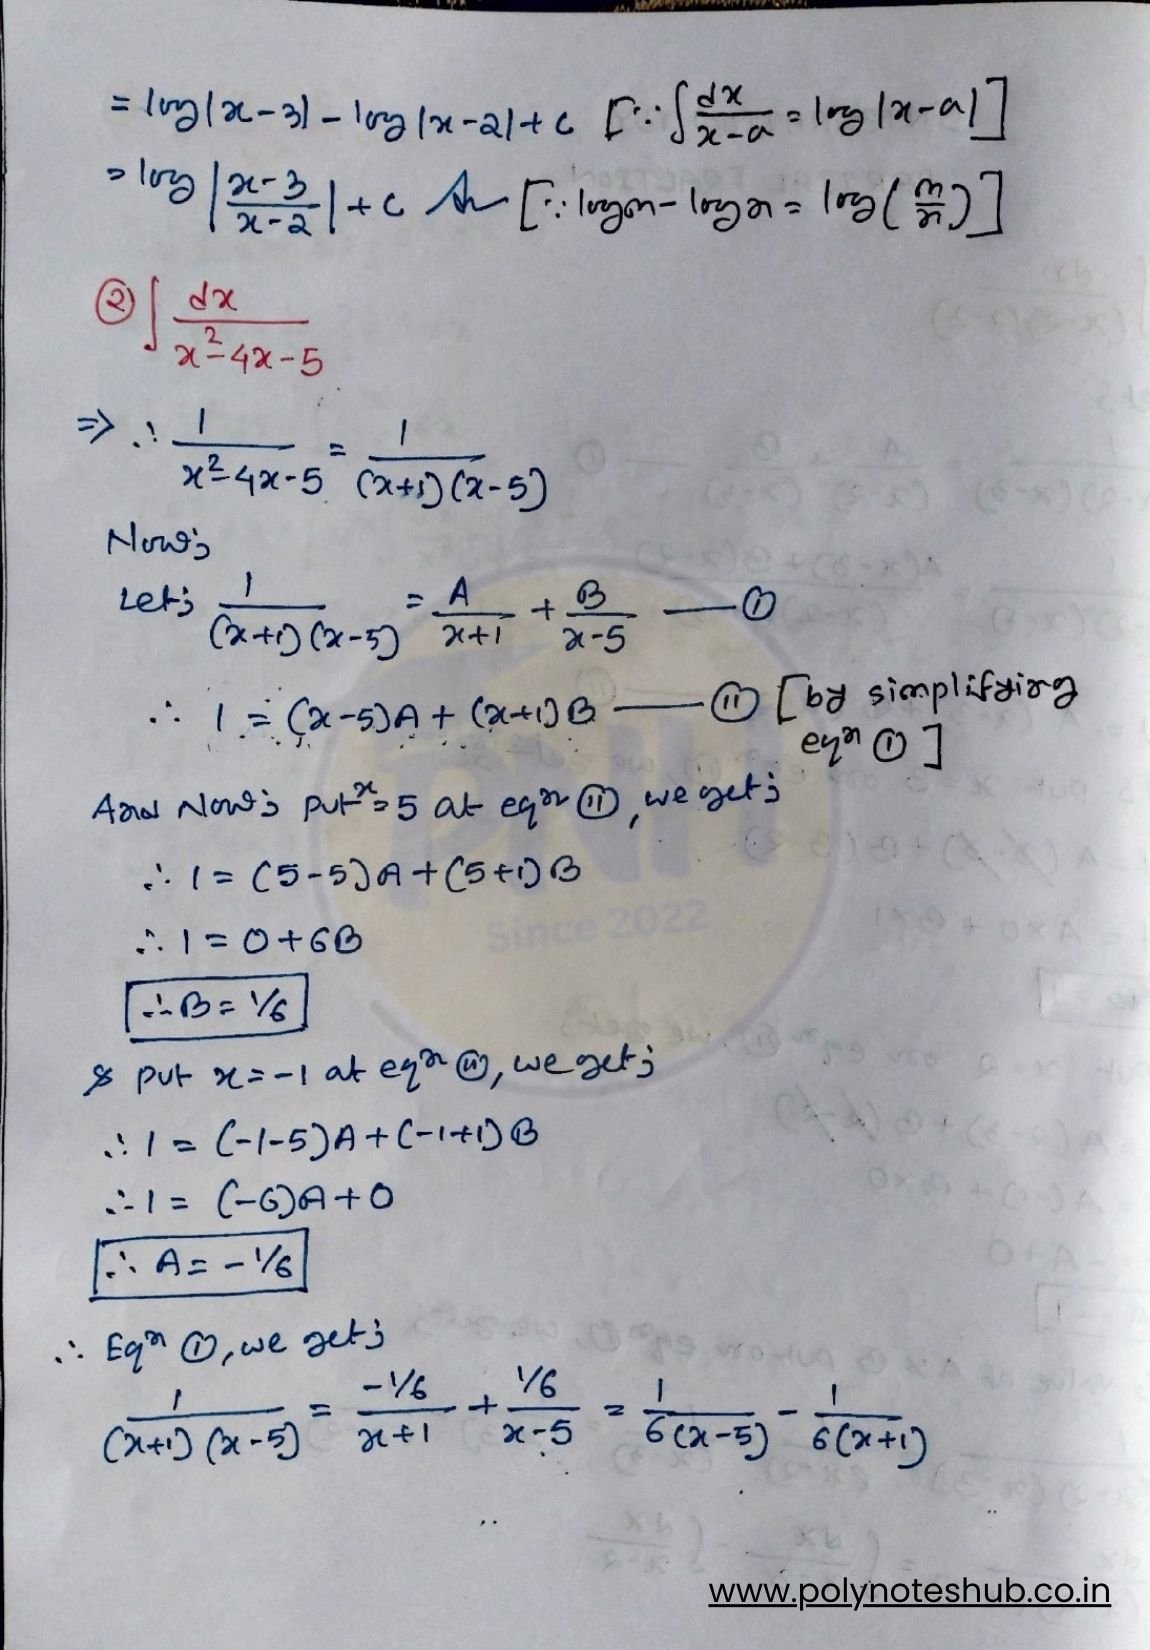 = log|x-3| - log|x-2| + c [∵ ∫ dx/(x-a) = log|x-a|]
= log |(x-3)/(x-2)| + c Ans [∵ logm - logn = log(m/n)]
② ∫ dx/(x²-4x-5)
⇒ ∴ 1/(x²-4x-5) = 1/((x+1)(x-5))
Now;
Let; 1/((x+1)(x-5)) = A/(x+1) + B/(x-5) —— ①
∴ 1 = (x-5)A + (x+1)B —— ⑪ [by simplifying
eqⁿ ①]
And Now; put x=5 at eqⁿ ⑪, we get;
∴ 1 = (5-5)A + (5+1)B
∴ 1 = 0 + 6B
∴ B = 1/6
& put x = -1 at eqⁿ ⑪, we get;
∴ 1 = (-1-5)A + (-1+1)B
∴ 1 = (-6)A + 0
∴ A = -1/6
∴ Eqⁿ ①, we get;
1/((x+1)(x-5)) = (-1/6)/(x+1) + (1/6)/(x-5) = 1/(6(x-5)) - 1/(6(x+1))
PNH
Since 2022
www.polynoteshub.co.in